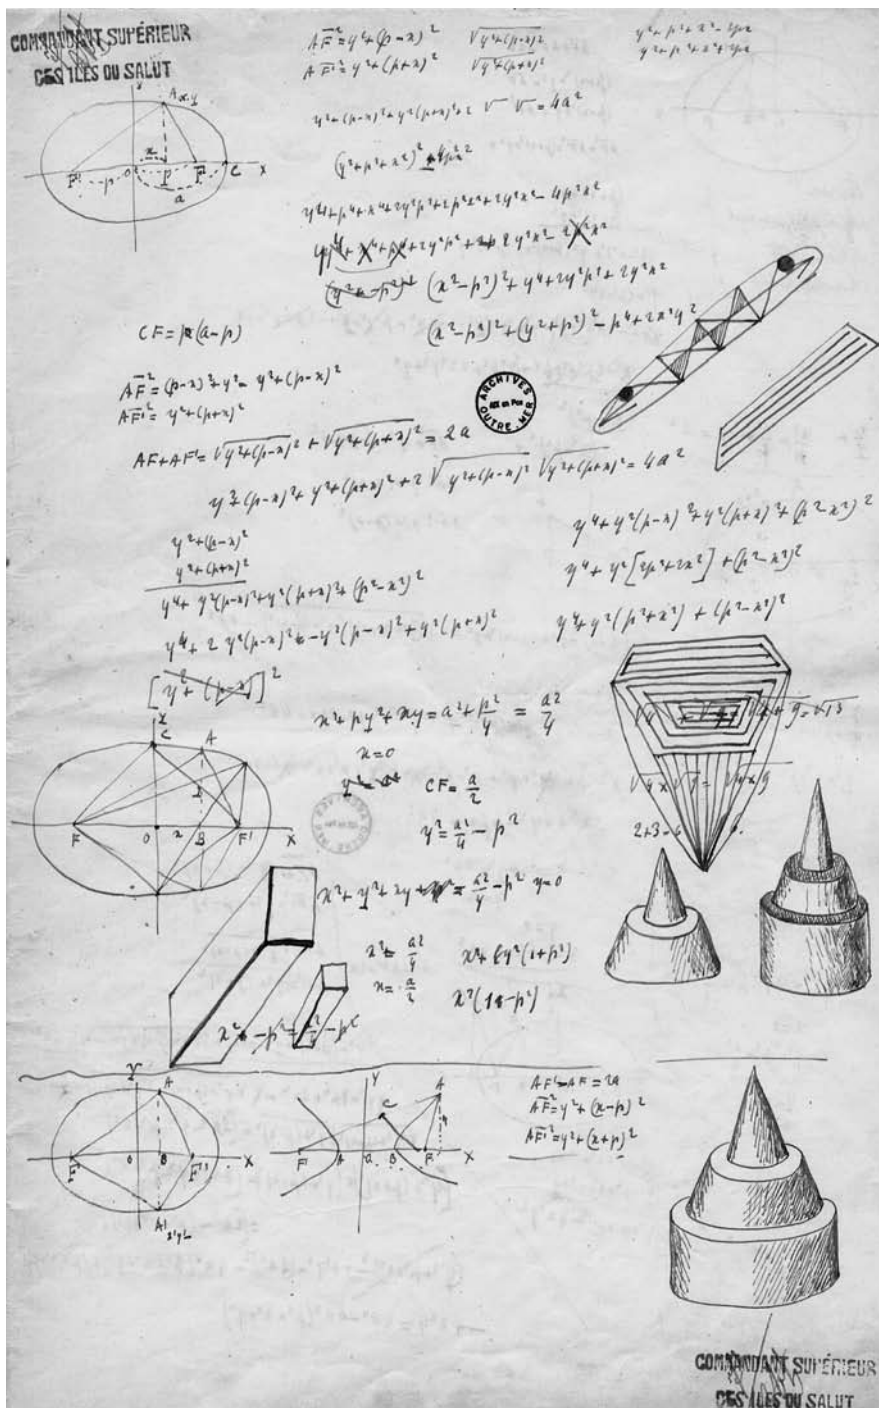 COMMANDANT SUPÉRIEUR
DES ILES DU SALUT
AF² = y² + (p-x)² √y²+(p-x)²
AF'² = y² + (p+x)² √y²+(p+x)²
y² + p² + x² - 2px
y² + p² + x² + 2px
A x,y
F' p O x P F C X
a
y² + (p-x)² + y² (p+x)² + 2 √ √ = 4a²
(y²+p²+x²)²
y⁴ + p⁴ + x⁴ + 2y²p² + 2p²x² + 2y²x² - 4p²x²
(x²-p²)² + y⁴ + 2y²p² + 2y²x²
(x²-p²)² + (y²+p²)² - p⁴ + 2x²y²
CF = (a-p)
AF² = (p-x)² + y² = y² + (p-x)²
AF'² = y² + (p+x)²
ARCHIVES
AIX en Pce
OUTRE-MER
AF + AF' = √y²+(p-x)² + √y²+(p+x)² = 2a
y² + (p-x)² + y² + (p+x)² + 2 √y²+(p-x)² √y²+(p+x)² = 4a²
y² + (p-x)²
y² + (p+x)²
y⁴ + y²(p-x)² + y²(p+x)² + (p²-x²)²
y⁴ + 2 y²(p-x)² - y²(p-x)² + y²(p+x)²
y⁴ + y²(p-x)² + y²(p+x)² + (p²-x²)²
y⁴ + y² [2p²+2x²] + (p²-x²)²
y⁴ + y² (p²+x²) + (p²-x²)²
x² + py² + xy = a² + p²/4 = a²/4
x = 0
CF = a/2
y² = a²/4 - p²
C A
F O x B F' X
9 = √13
2+3 =
x² + y² + xy + = a²/4 - p² y=0
x² = a²/4
x = a/2
x² + y² (1+p²)
x² (1 - p²)
Y A
F' O B F X
A'
Y A
C
F' A O B F X
AF' - AF = 2a
AF² = y² + (x-p)²
AF'² = y² + (x+p)²
COMMANDANT SUPÉRIEUR
DES ILES DU SALUT